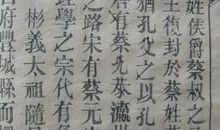 姓侯爵蔡叔之
王復封於蔡姓
猶孔父之以孔
有蔡允恭瀛洲
之路宋有蔡元
經學之宗代有
彬義太祖隨
府豐城縣而